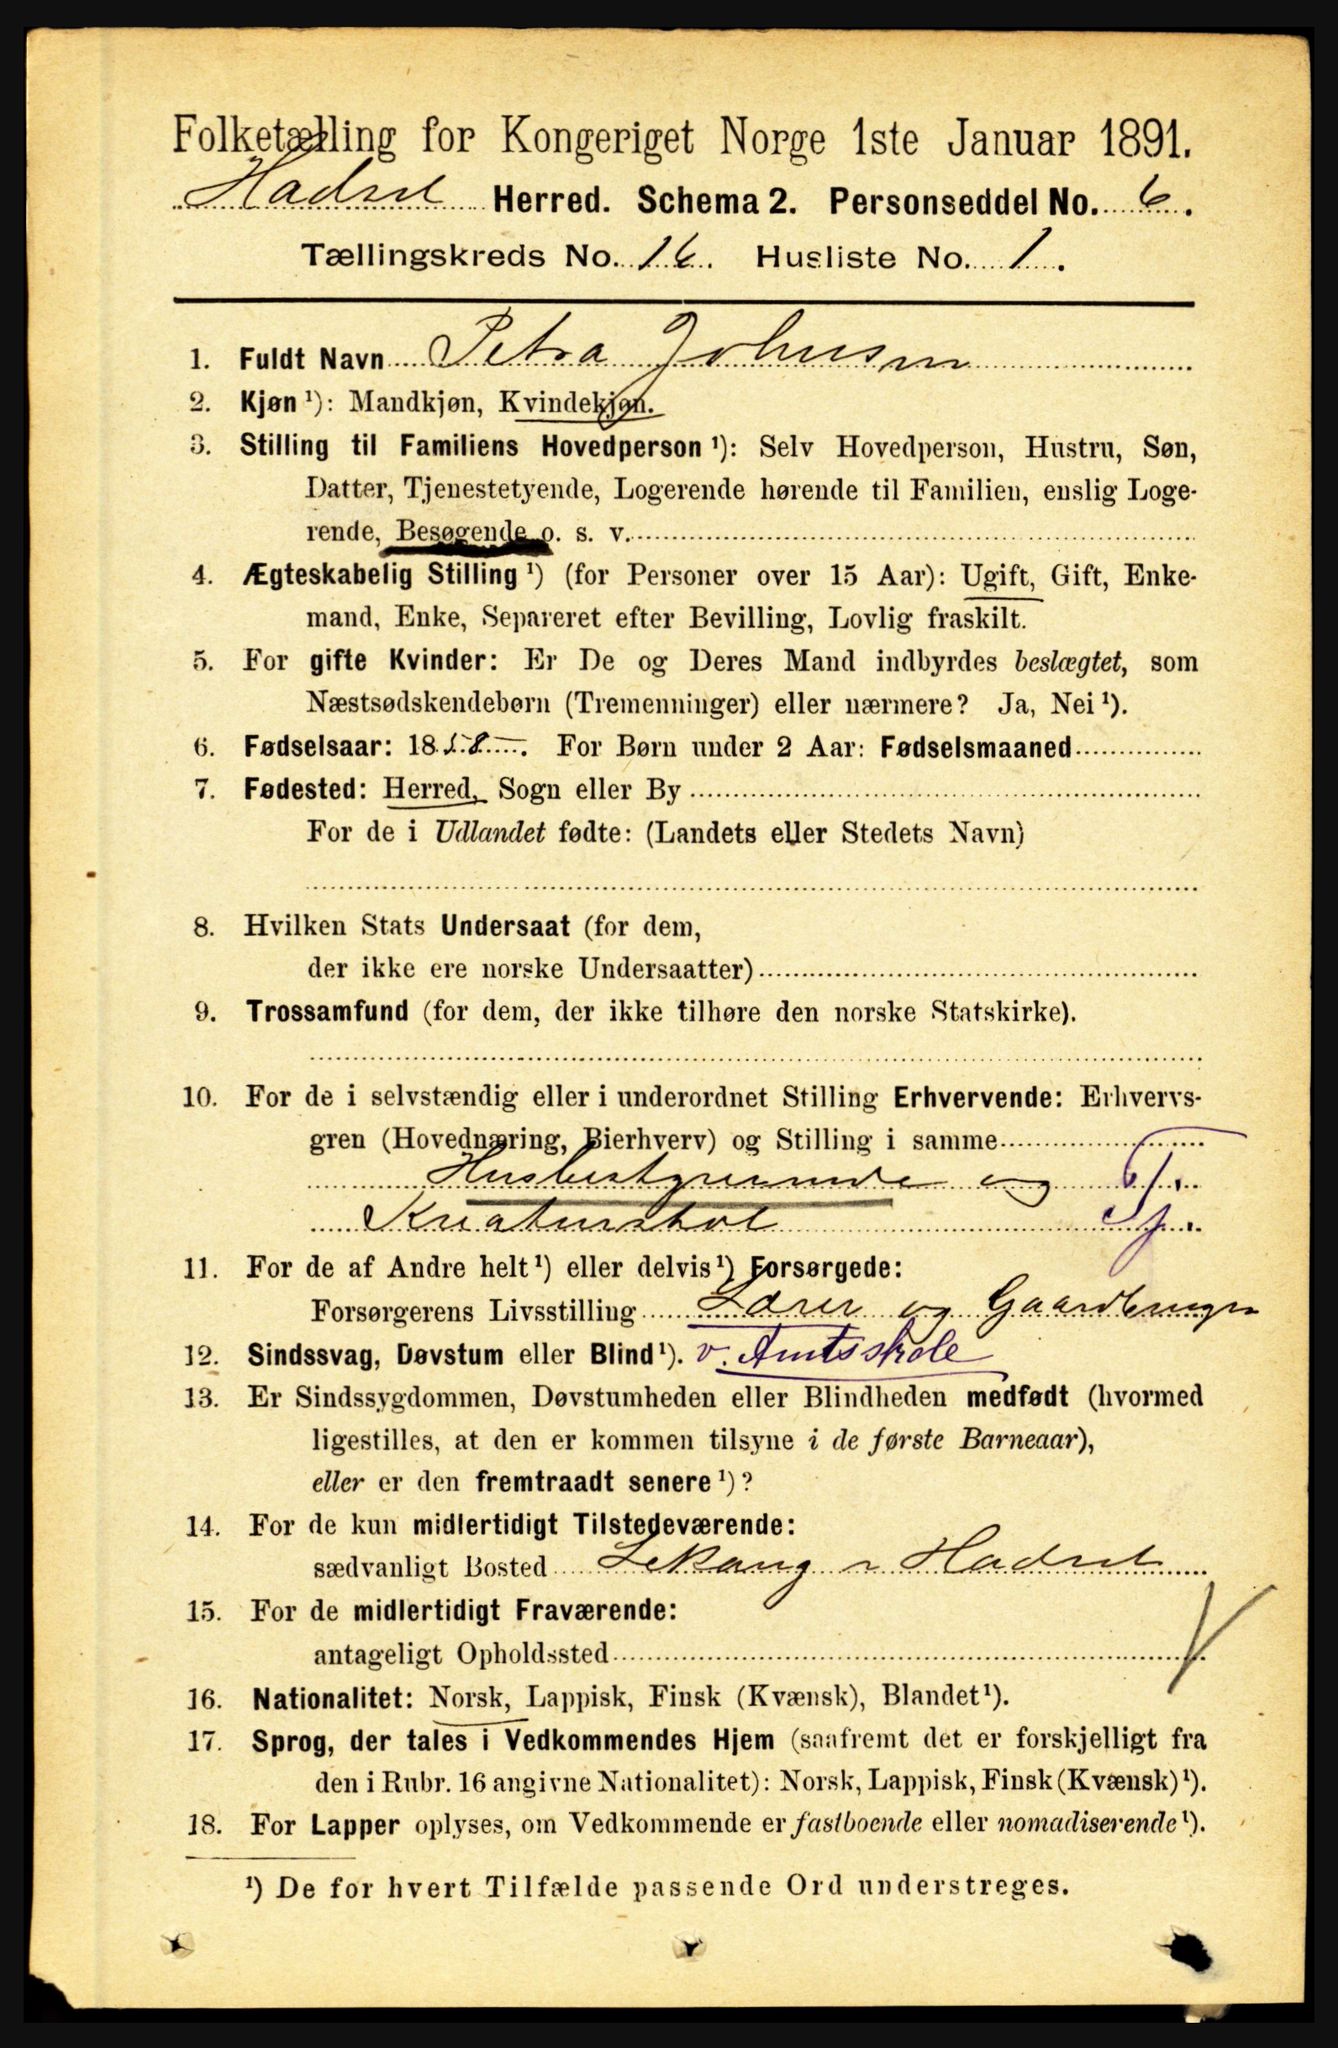 Folketælling for Kongeriget Norge 1ste Januar 1891.
Hadsel Herred. Schema 2. Personseddel No. 6.
Tællingskreds No. 16. Husliste No. 1.
1. Fuldt Navn Petra Johnsen
2. Kjøn ¹): Mandkjøn, Kvindekjøn.
3. Stilling til Familiens Hovedperson ¹): Selv Hovedperson, Hustru, Søn,
Datter, Tjenestetyende, Logerende hørende til Familien, enslig Loge-
rende, Besøgende o. s. v.
4. Ægteskabelig Stilling ¹) (for Personer over 15 Aar): Ugift, Gift, Enke-
mand, Enke, Separeret efter Bevilling, Lovlig fraskilt.
5. For gifte Kvinder: Er De og Deres Mand indbyrdes beslægtet, som
Næstsødskendebørn (Tremenninger) eller nærmere? Ja, Nei ¹).
6. Fødselsaar: 1858. For Børn under 2 Aar: Fødselsmaaned
7. Fødested: Herred, Sogn eller By
For de i Udlandet fødte: (Landets eller Stedets Navn)
8. Hvilken Stats Undersaat (for dem,
der ikke ere norske Undersaatter)
9. Trossamfund (for dem, der ikke tilhøre den norske Statskirke).
10. For de i selvstændig eller i underordnet Stilling Erhvervende: Erhvervs-
gren (Hovednæring, Bierhverv) og Stilling i samme
Husbestyrerinde og
Kreaturstel
11. For de af Andre helt ¹) eller delvis ¹) Forsørgede:
Forsørgerens Livsstilling Lærer og Gaardbruger
12. Sindssvag, Døvstum eller Blind ¹). v. Amtsskole
13. Er Sindssygdommen, Døvstumheden eller Blindheden medfødt (hvormed
ligestilles, at den er kommen tilsyne i de første Barneaar),
eller er den fremtraadt senere ¹)?
14. For de kun midlertidigt Tilstedeværende:
sædvanligt Bosted Lekang Hadsel
15. For de midlertidigt Fraværende:
antageligt Opholdssted
16. Nationalitet: Norsk, Lappisk, Finsk (Kvænsk), Blandet ¹).
17. Sprog, der tales i Vedkommendes Hjem (saafremt det er forskjelligt fra
den i Rubr. 16 angivne Nationalitet): Norsk, Lappisk, Finsk (Kvænsk) ¹).
18. For Lapper oplyses, om Vedkommende er fastboende eller nomadiserende ¹).
¹) De for hvert Tilfælde passende Ord understreges.